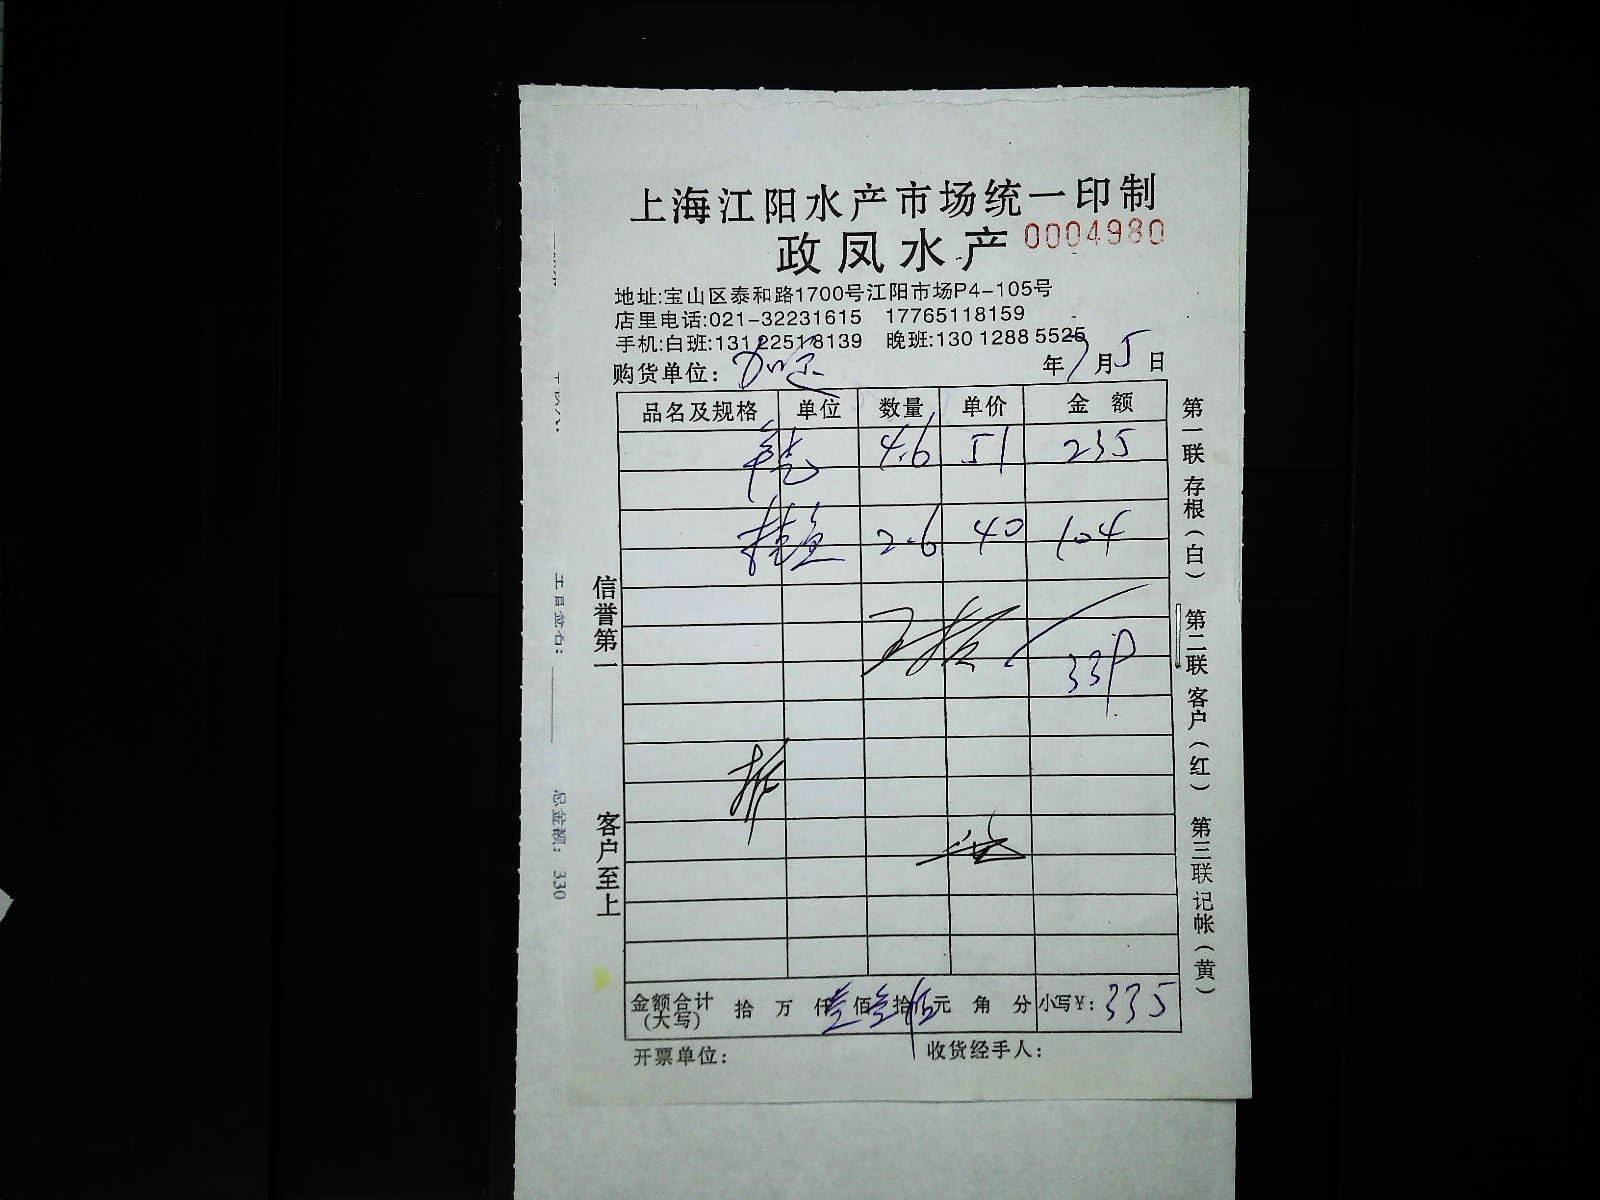 上海江阳水产市场统一印制
政凤水产 0004980
地址:宝山区泰和路1700号江阳市场P4-105号
店里电话:021-32231615 17765118159
手机:白班:13122518139 晚班:13012885525
购货单位: 年7月5日
品名及规格 单位 数量 单价 金额
4.6 51 235
桂鱼 2.6 40 104
339
金额合计(大写) 拾 万 仟 叁佰叁拾伍元 角 分 小写¥: 335
开票单位: 收货经手人:
信誉第一 客户至上
第一联存根(白) 第二联客户(红) 第三联记帐(黄)
总金额: 330